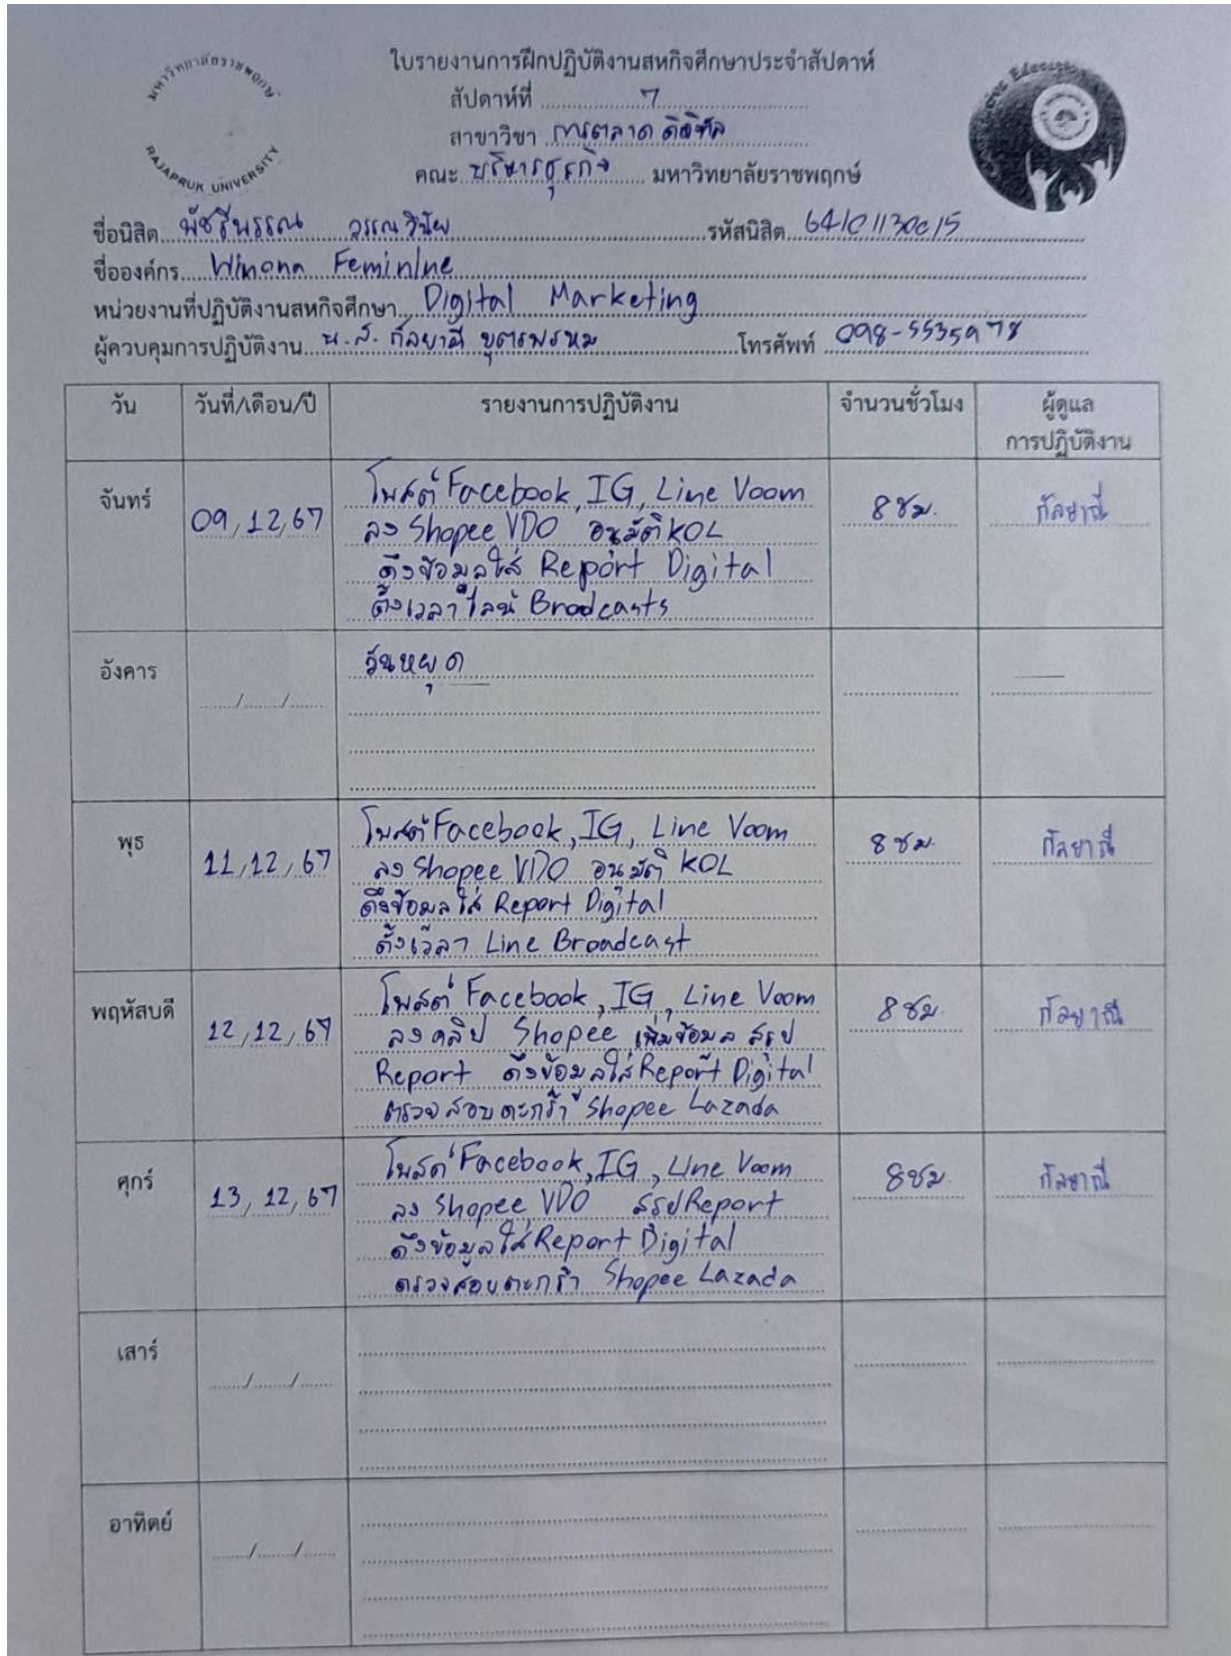 มหาวิทยาลัยราชพฤกษ์
RAJAPRUK UNIVERSITY
ใบรายงานการฝึกปฏิบัติงานสหกิจศึกษาประจำสัปดาห์
สัปดาห์ที่ 7
สาขาวิชา การตลาดดิจิทัล
คณะ บริหารธุรกิจ มหาวิทยาลัยราชพฤกษ์
ชื่อนิสิต พัชรีพรรณ วรรณวินัย รหัสนิสิต
ชื่อองค์กร Winona Feminine
หน่วยงานที่ปฏิบัติงานสหกิจศึกษา Digital Marketing
ผู้ควบคุมการปฏิบัติงาน น.ส. กัลยาณี บุตรพรหม โทรศัพท์ 098-5535978
วัน วันที่/เดือน/ปี รายงานการปฏิบัติงาน จำนวนชั่วโมง ผู้ดูแล
การปฏิบัติงาน
จันทร์ 09/12/67 โพสต์ Facebook, IG, Line Voom 8 ชม. กัลยาณี
ลง Shopee VDO อนุมัติ KOL
ดึงข้อมูลใส่ Report Digital
ตั้งเวลาไลน์ Brodcasts
อังคาร วันหยุด
พุธ 11/12/67 โพสต์ Facebook, IG, Line Voom 8 ชม. กัลยาณี
ลง Shopee VDO อนุมัติ KOL
ดึงข้อมูลใส่ Report Digital
ตั้งเวลา Line Broadcast
พฤหัสบดี 12/12/67 โพสต์ Facebook, IG, Line Voom 8 ชม. กัลยาณี
ลงคลิป Shopee เพิ่มข้อมูล สรุป
Report ดึงข้อมูลใส่ Report Digital
ตรวจสอบตะกร้า Shopee Lazada
ศุกร์ 13/12/67 โพสต์ Facebook, IG, Line Voom 8 ชม. กัลยาณี
ลง Shopee VDO สรุป Report
ดึงข้อมูลใส่ Report Digital
ตรวจสอบตะกร้า Shopee Lazada
เสาร์
อาทิตย์